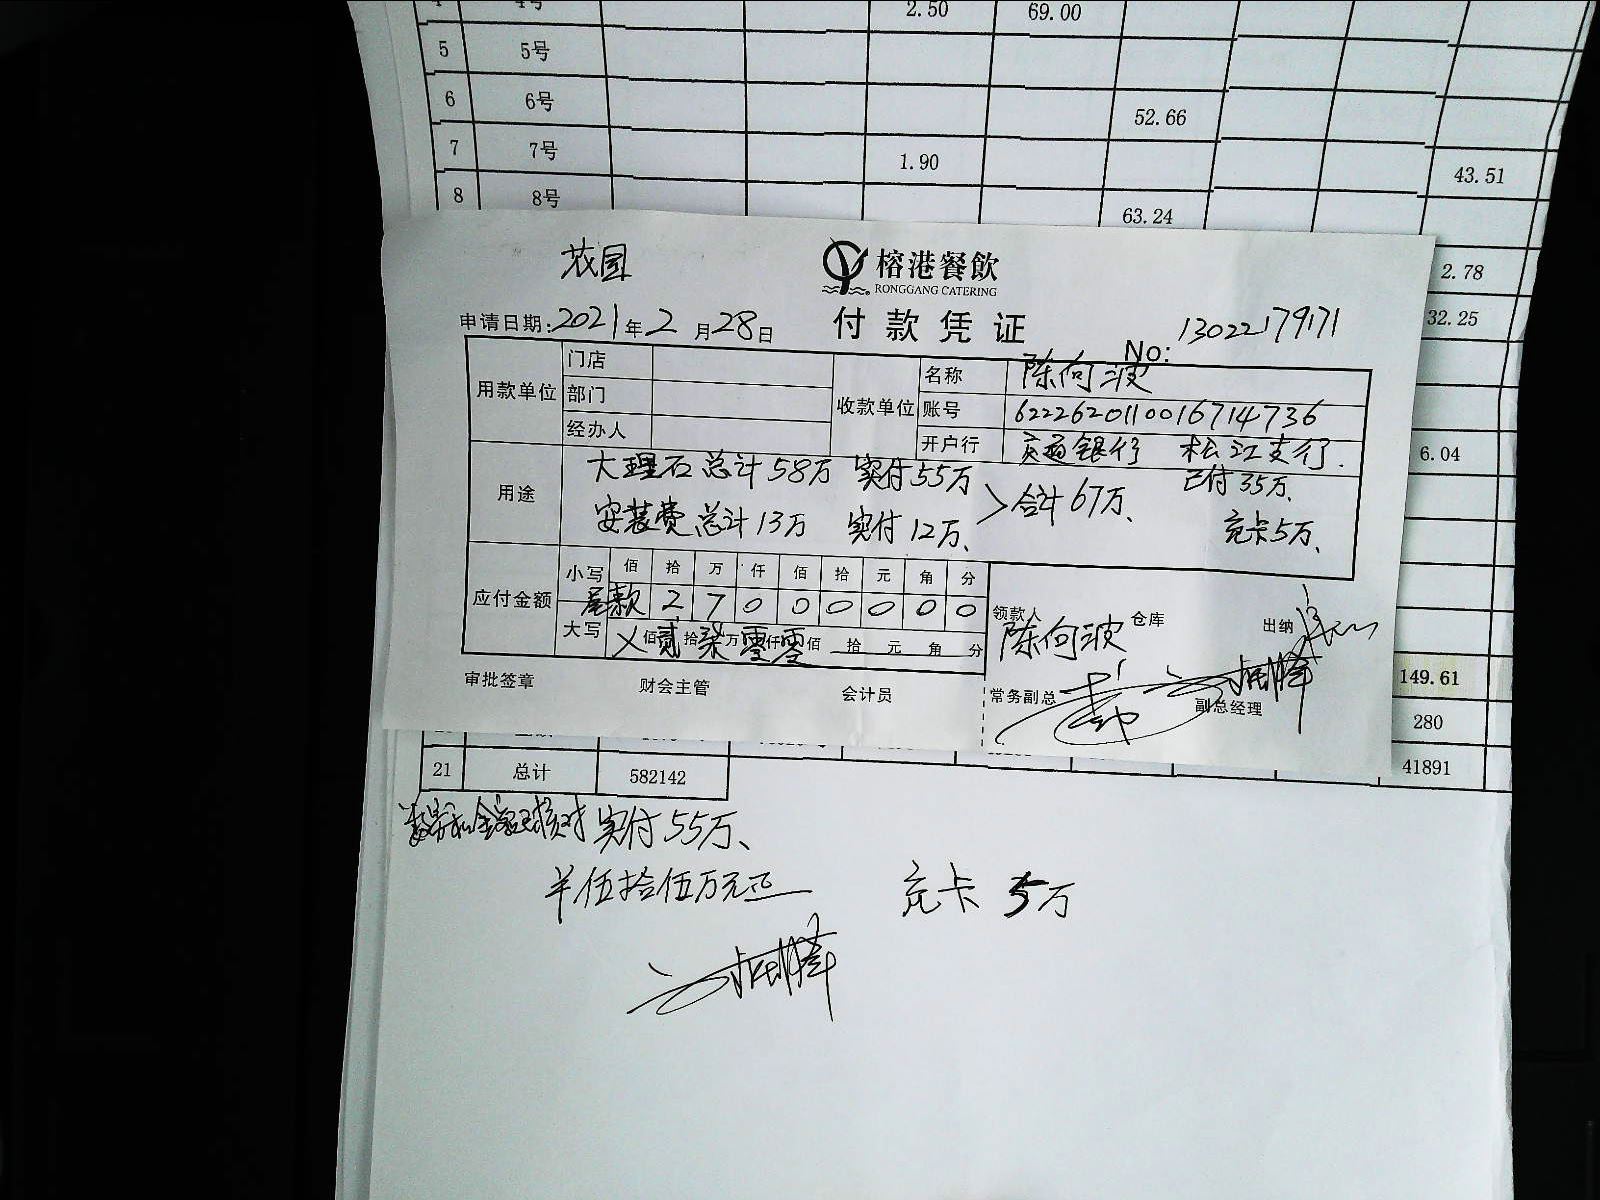 4号 2.50 69.00
5 5号
6 6号 52.66
7 7号 1.90 43.51
8 8号 63.24
2.78
32.25
6.04
149.61
280
41891
茂园
榕港餐飲
RONGGANG CATERING
付款凭证
申请日期:2021年2月28日
No: 13022179171
用款单位 门店
部门
经办人
收款单位 名称 陈向波
账号 6222620110016714736
开户行 交通银行 松江支行.
用途 大理石总计58万 实付55万
安装费总计13万 实付12万、
合计67万、
已付35万、
充卡5万、
应付金额 小写 佰 拾 万 仟 佰 拾 元 角 分
尾款 2 7 0 0 0 0 0 0
大写 乂佰贰拾柒万零仟零佰 拾 元 角 分
领款人 陈向波
仓库
出纳
审批签章 财会主管 会计员 常务副总 副总经理
21 总计 582142
实付55万、
伍拾伍万元正
充卡 5万